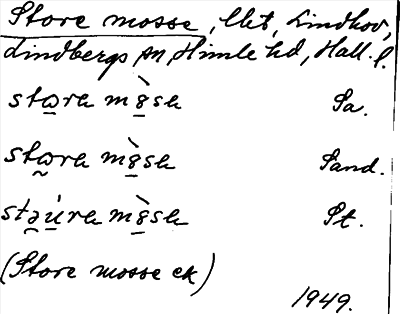 Store mosse, Uet, Lindhov,
Lindbergs sn, Himle hd, Hall. l.
stω̲ra mò̲sa Sa.
stω̰ra mò̲sa Sand.
stə̰ú̲ra mò̲sa St.
(Store mosse ek)
1949.